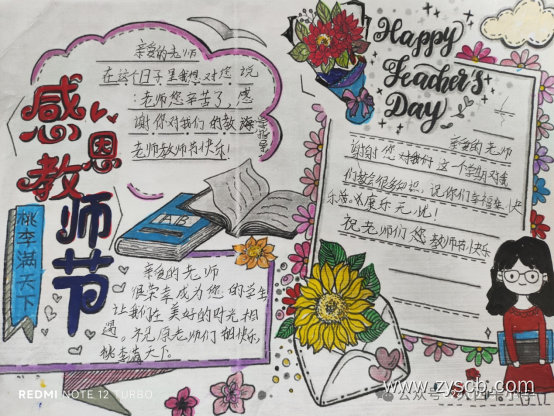 感恩
教师节
桃李满天下
亲爱的老师
在这个日子里我想对您说
:老师您辛苦了,感
谢你对我们的教
老师教师节快乐!
Happy
Teacher's
Day
亲爱的老师
谢谢您对我们这一个学期对我
们教会很多知识,祝你们幸福安快
乐活,健康乐无忧!
祝老师们您教师节快乐
AB
亲爱的老师
很荣幸成为您的学生
让我们在美好的时光相
遇。不见原老师们细快乐
桃李满天下。
REDMI NOTE 12 TURBO
公众号
www.zyscb.com